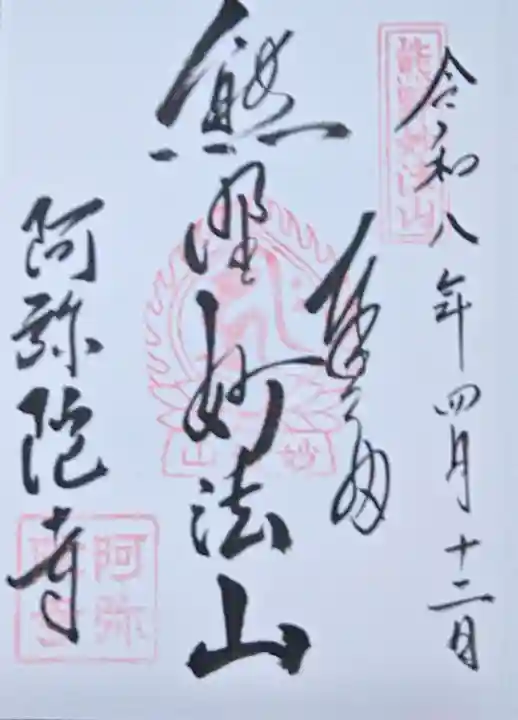 令和八年四月十二日
熊野妙法山
奉拝
熊野妙法山
妙法山
阿弥陀寺
阿弥陀寺